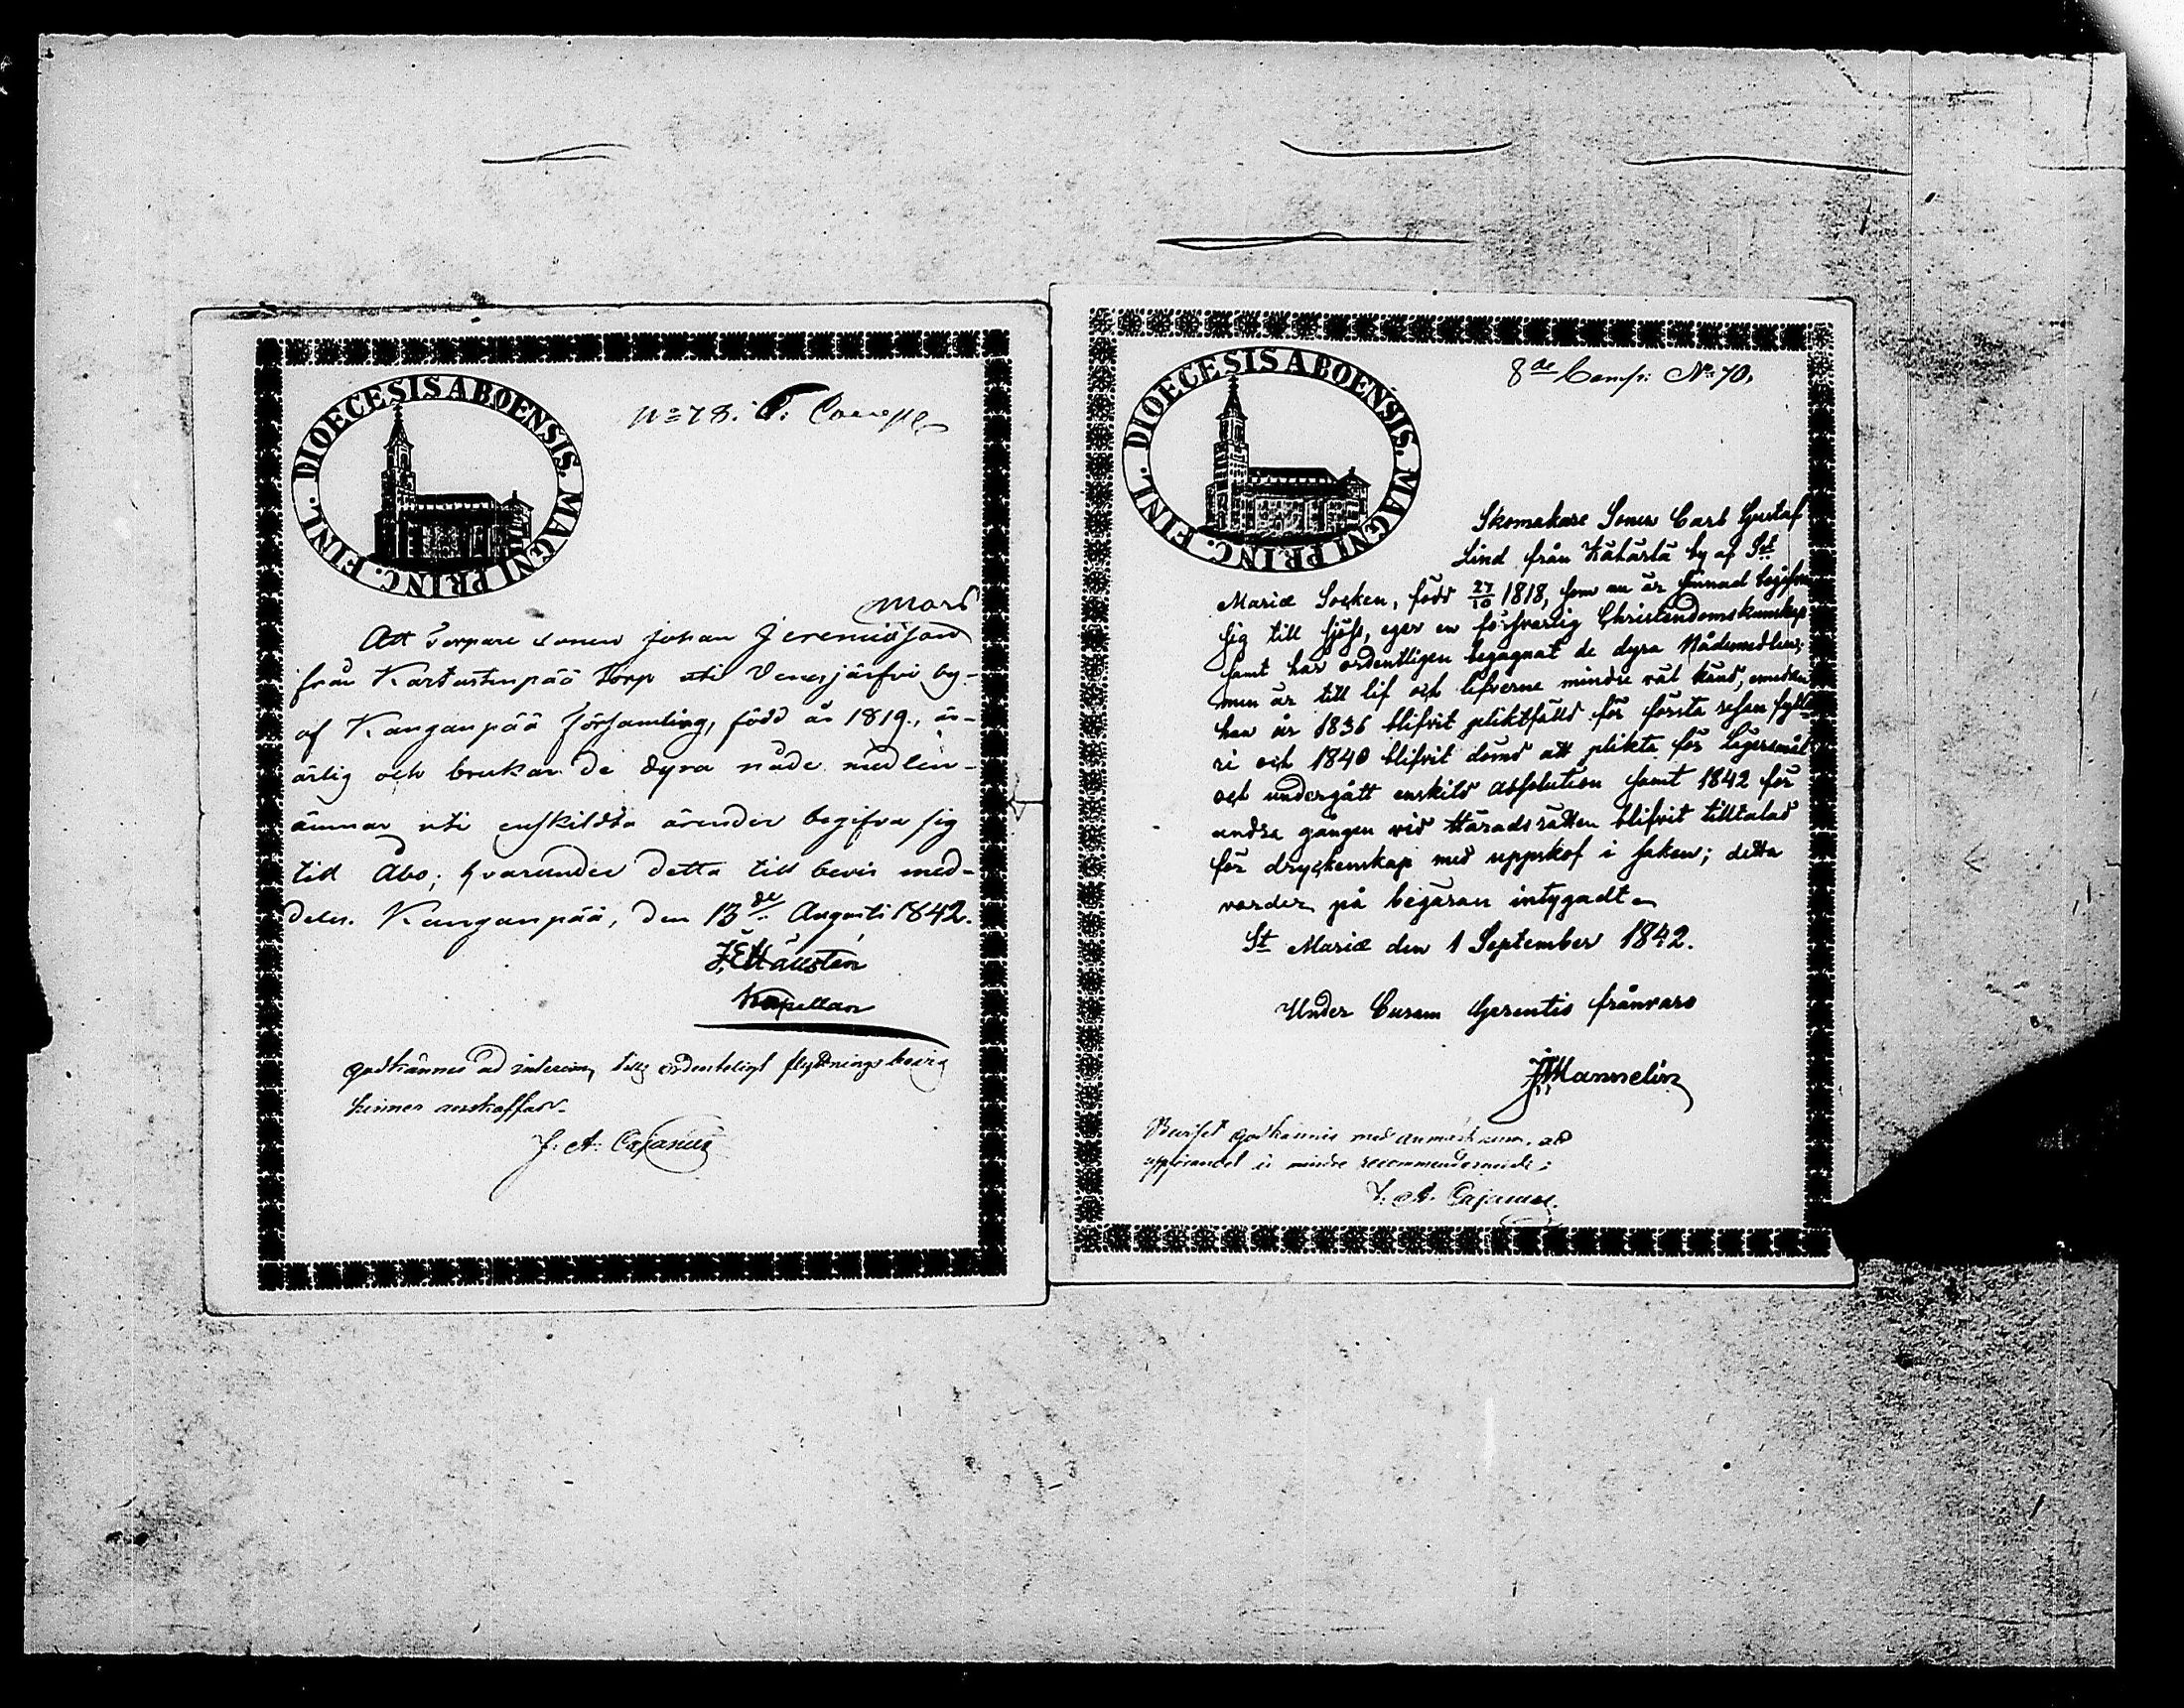 DIOECESIS ABOENSIS. MAGNI PRINC. FINL.
No 78.
Mars
Att Torpare sonen Johan Jeremiäson
från Kartustenpää torp uti Venesjärfvi by
af Kanganpää Församling, född år 1819., är
ärlig och brukar de dyra nåde medlen
ämnar uti enskildta ärender begifva sig
till Åbo; hvarunder detta till bevis med-
delas. Kanganpää, den 13de Augusti 1842.
J.E. Hällsten
Kapellan
godkännes ad interim, tills ordenteligt flyttnings bevis
hinner anskaffas.
J. A. Cajanus
DIOECESIS ABOENSIS. MAGNI PRINC. FINL.
8de Comp: No 70.
Skomakare Sonen Carl Gustaf
Lind från Kähärlä by af St
Mariæ Socken, född 27/10 1818, som nu är sinnad begifva
sig till sjöss, eger en försvarlig Christendomskunskap
samt har ordentligen begagnat de dyra Nådemedlen;
men är till lif och lefverne mindre väl känd, emedan
han år 1836 blifvit pliktfälld för första resan fylle
ri och 1840 blifvit dömd att plikta för lägersmål
och undergått enskild absolution samt 1842 för
andra gången vid Häradsrätten blifvit tilltalad
för dryckenskap med uppskof i saken; detta
varder på begäran intygadt.
St Mariæ den 1 September 1842.
Under Curam Gerentis frånvaro
Mannelin
Beviset godkännes med anmärkning, att
uppförandet är mindre recommenderande;
J. A. Cajanus.